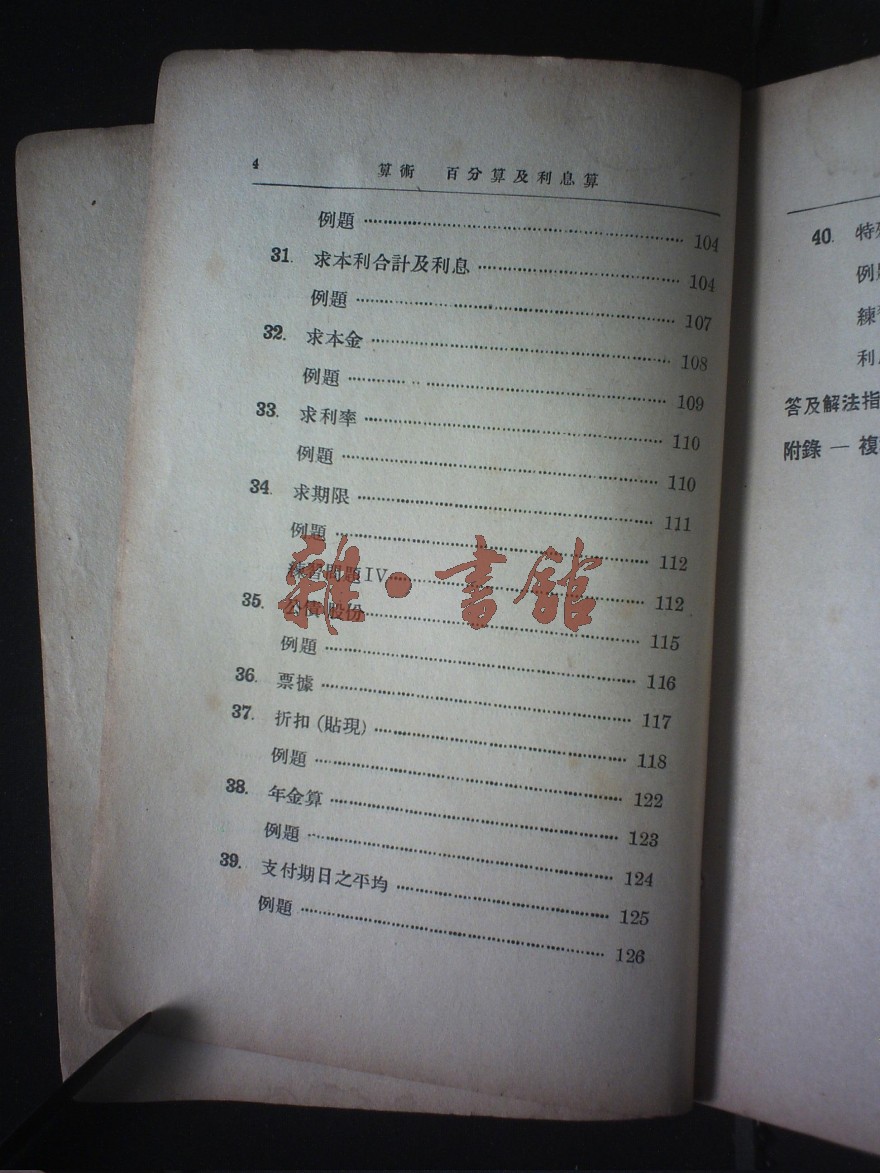 4 算術 百分算及利息算
例題 104
31. 求本利合計及利息 104
例題 107
32. 求本金 108
例題 109
33. 求利率 110
例題 110
34. 求期限 111
例題 112
練習問題IV 112
35. 公債 股份 115
例題 116
36. 票據 117
37. 折扣 (貼現) 118
例題 122
38. 年金算 123
例題 124
39. 支付期日之平均 125
例題 126
雜·書館
40. 特
例
練
利
答及解法指
附錄 — 複